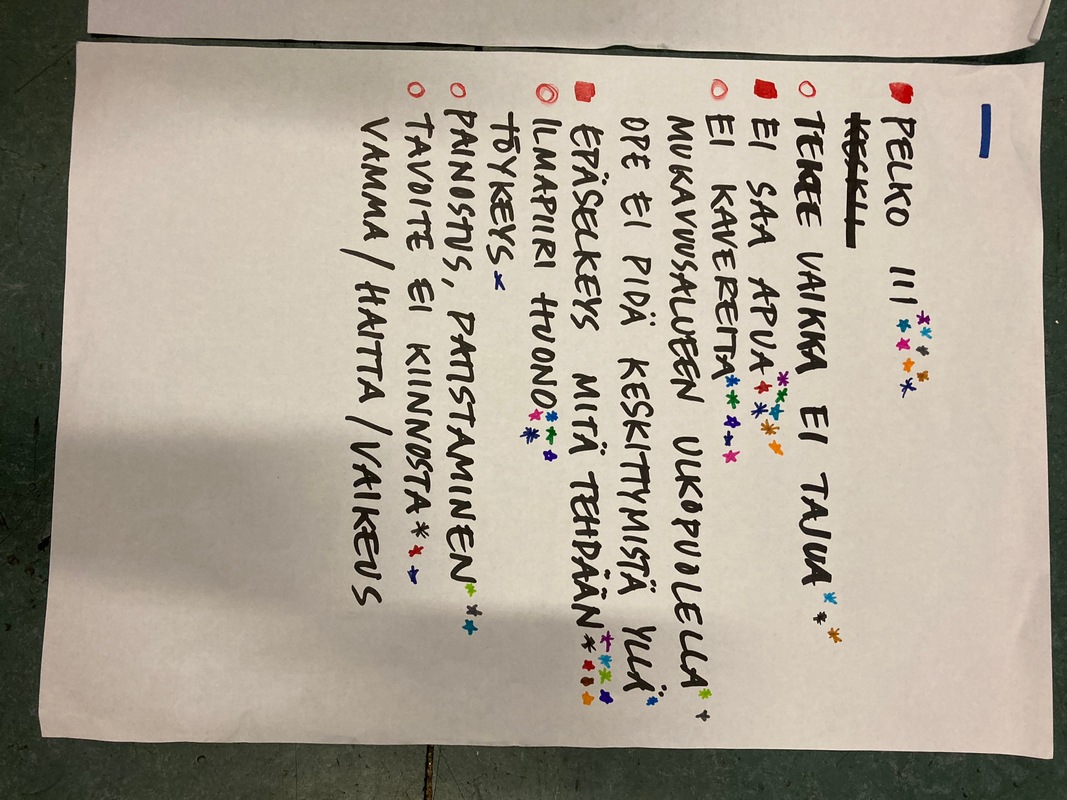 PELKO III
KESKI
TEKEE VAIKKA EI TAJUA
EI SAA APUA
EI KAVEREITA
MUKAVUUSALUEEN ULKOPUOLELLA
OPE EI PIDÄ KESKITTYMISTÄ YLLÄ
EPÄSELKEYS MITÄ TEHDÄÄN
ILMAPIIRI HUONO
TÖYKEYS
PAINOSTUS, PATISTAMINEN
TAVOITE EI KIINNOSTA
VAMMA / HAITTA / VAIKEUS